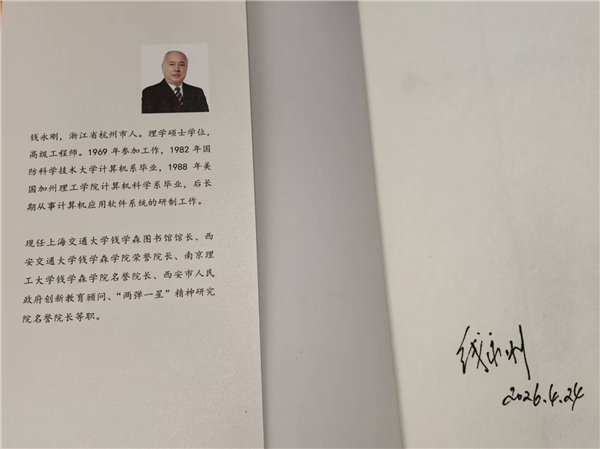 钱永刚，浙江省杭州市人。理学硕士学位，
高级工程师。1969 年参加工作，1982 年国
防科学技术大学计算机系毕业，1988 年美
国加州理工学院计算机科学系毕业，后长
期从事计算机应用软件系统的研制工作。
现任上海交通大学钱学森图书馆馆长、西
安交通大学钱学森学院荣誉院长、南京理
工大学钱学森学院名誉院长、西安市人民
政府创新教育顾问、“两弹一星”精神研究
院名誉院长等职。
钱永刚
2026.4.24